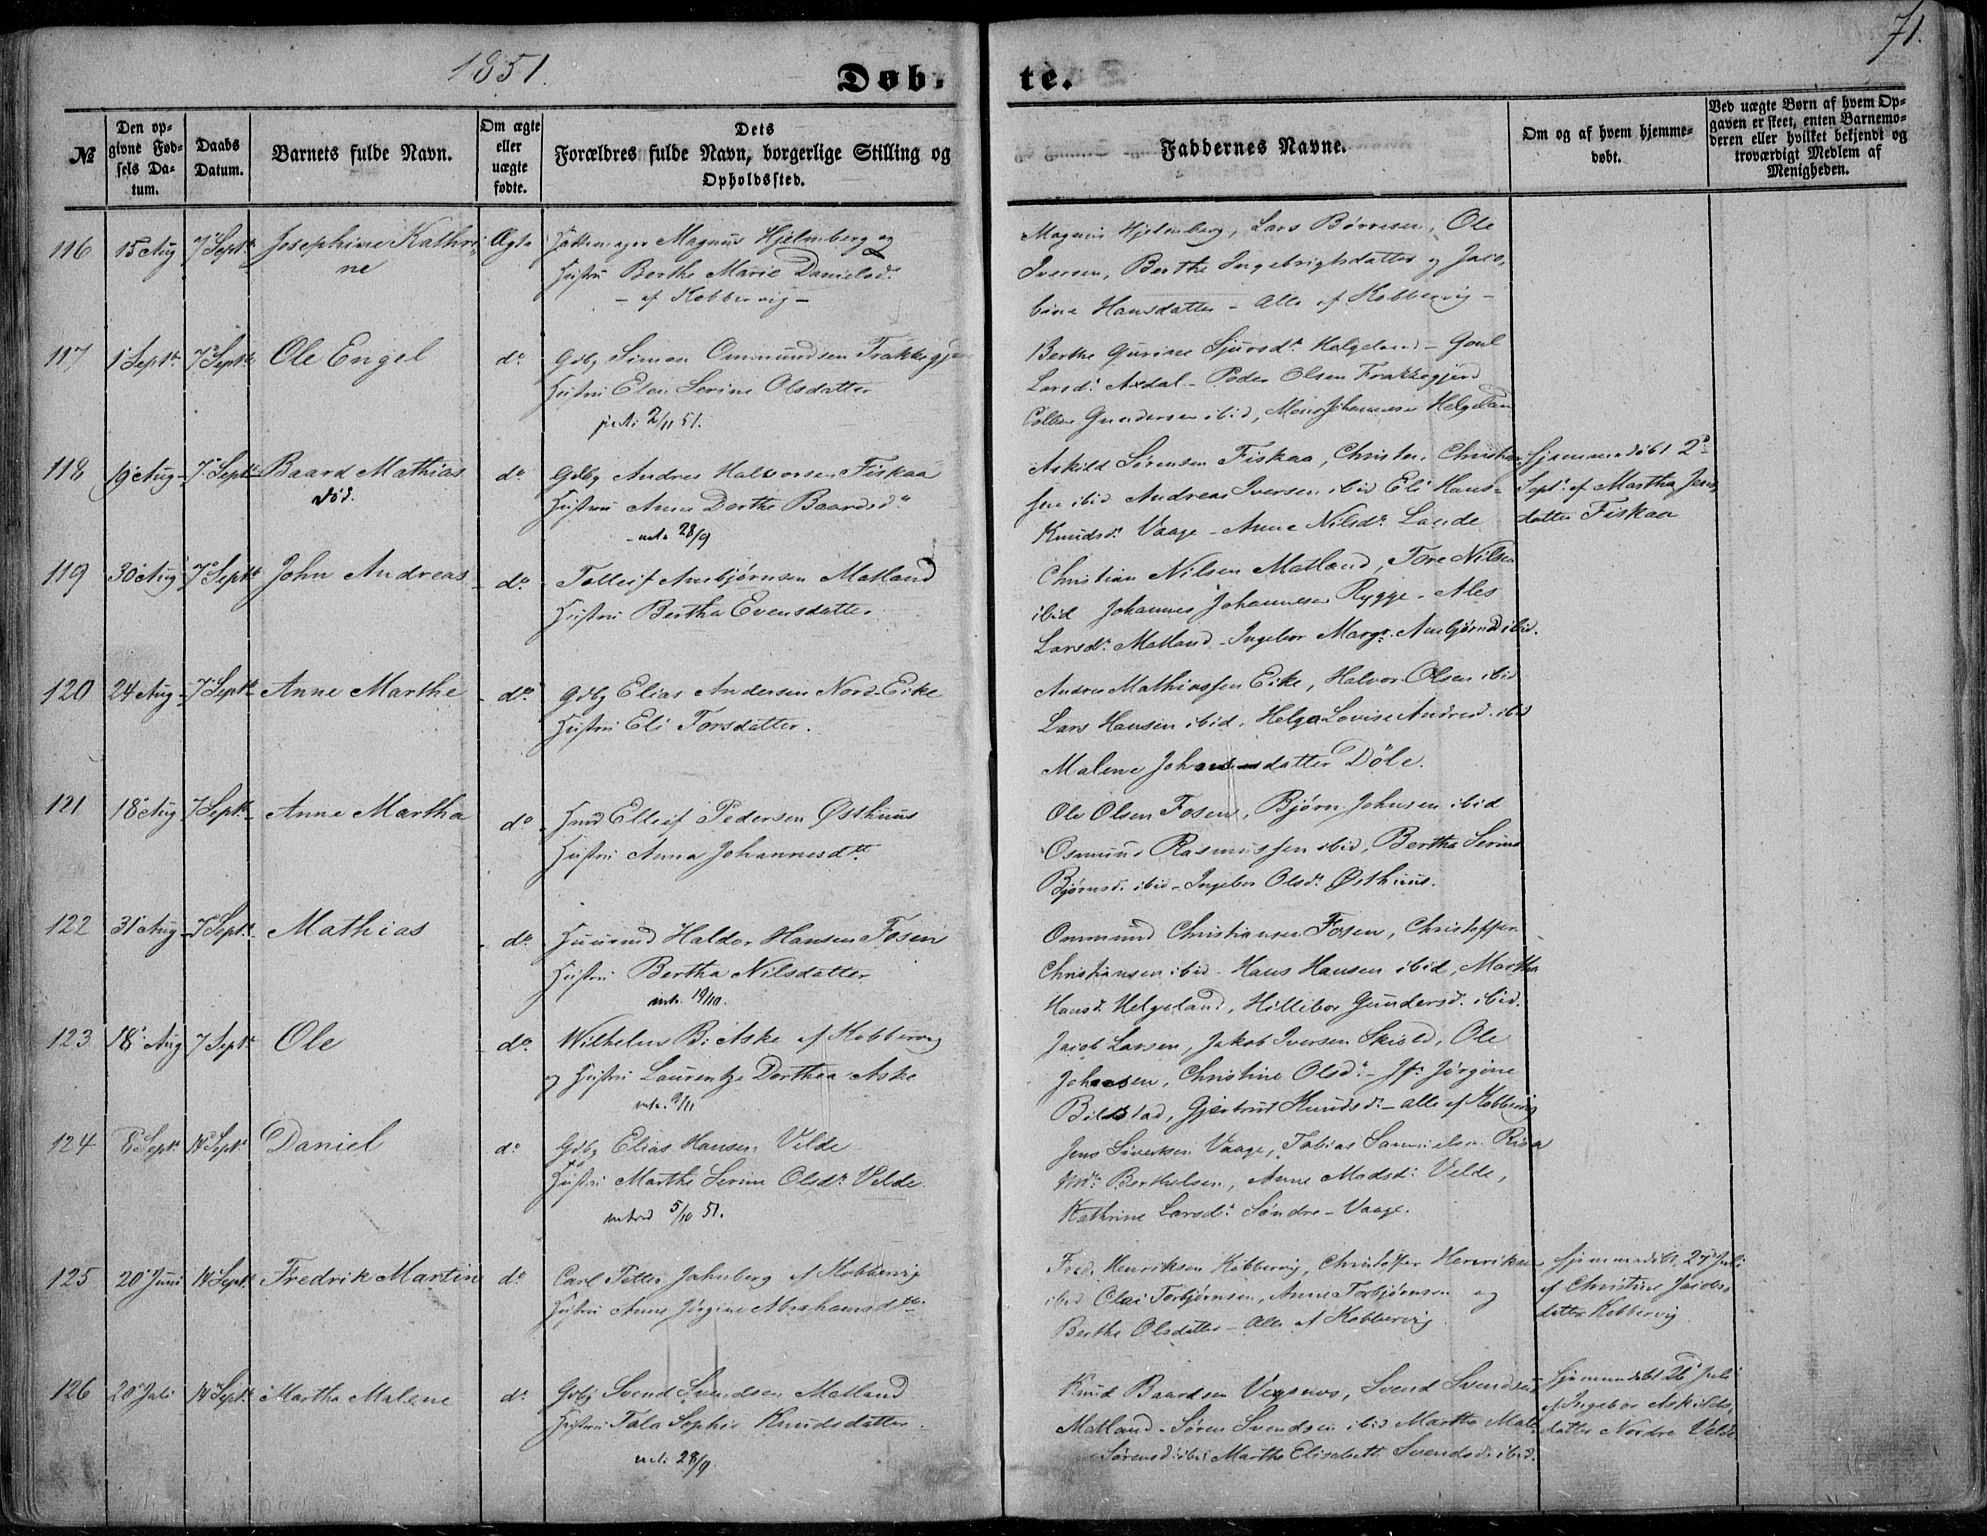 1851.
71.
Døb-
te.
№
Den op-
givne Fød-
sels Da-
tum.
Daabs
Datum.
Barnets fulde Navn.
Om ægte
eller
uægte
fødte.
Dets
Forældres fulde Navn, borgerlige Stilling og
Opholdssted.
Faddernes Navne.
Om og af hvem hjemme-
døbt.
Ved uægte Børn af hvem Op-
gaven er skeet, enten Barnemo-
deren eller hvilket bekjendt og
troværdigt Medlem af
Menigheden.
116
15 Aug
7 Septr
Josephine Kathri-
ne
Ægte
Magnus Hjelmberg og
Hustru Berthe Marie Danielsdr
- af Kobbervig -
Magnus Hjelmberg, Lars Børresen, Ole
Iversen, Berthe Ingebrigtsdatter og Jaco-
bine Hansdatter - Alle af Kobbervig -
117
1 Septr
7 Septr
Ole Engel
do
Gdbg Simon Ommundsen Frakkegjer
Hustru Elen Serine Olsdatter
2/11 51.
Berthe Gurine Sjursdr Helgeland - Goul
Larsdr Axdal - Peder Olsen Frakkegjerd
Gundersen ibid, Mons Johannesen Helgelan
118
19 Aug
7 Septr
Baard Mathias
død.
do
Gdbg Andres Halvorsen Fiskaa
Hustru Anne Dorthe Baardsdr
28/9
Askild Sørensen Fiskaa, Christen Christian
sen ibid Andreas Iversen ibid Eli Hans-
Knudsdr Vaage - Anne Nilsdr Lande
Hjemmedøbt 2
Septr af Martha Jens
datter Fiskaa
119
30 Aug
7 Septr
John Andreas
do
Tolleif Ambjørnsen Matland
Hustru Bertha Evensdatter
Christian Nilsen Matland, Tore Nilsen
ibid Johannes Johannesen Rygge - Ales
Larsdr Matland - Ingebor Margr. Ambjørnsd ibid.
120
24 Aug
7 Septr
Anne Marthe
do
Gdbg Elias Andersen Nord-Eike
Hustru Eli Torsdatter.
Andres Mathiassen Eike, Halvor Olsen ibid
Lars Hansen ibid, Helga Lovise Andresd. ibid
Malene datter Døle.
121
18 Aug
7 Septr
Anne Martha
do
Hmd Elleif Pedersen Østhuus
Hustru Anna Johannesdtt
Ole Olsen Fosen, Bjørn Johnsen ibid
Osmund Rasmussen ibid, Bertha Serine
Bjørnsd. ibid - Ingebor Olsdr Østhuus.
122
31 Aug
7 Septr
Mathias
do
Huusmd Haldor Hansen Fosen
Hustru Bertha Nilsdatter
19/10.
Ommund Christiansen Fosen, Christoffer
Christiansen ibid - Hans Hansen ibid, Martha
Hansd. Helgeland, Hillebor Gundersd. ibid.
123
18 Aug
7 Septr
Ole
do
Wilhelm B. Aske af Kobbervig
og Hustru Laurentze Dorthea Aske
9/11
Jacob Larsen, Jakob Iversen Skiold, Ole
Johnsen, Christine Olsdr - Jfr Jørgine
Bilstad, Gjertrud Knudsdr - alle af Kobbervig
124
8 Septr
14 Septr
Daniel
do
Gdbg Elias Hansen Velde
Hustru Marthe Serine Olsdr Velde
5/10 51.
Jens Sivertsen Vaage, Tobias Samuelsen Risøe
Bertholsen, Anne Madsdr Velde,
Kathrine Larsdr Søndre-Vaage.
125
20 Juni
14 Septr
Fredrik Martin
do
Carl Petter Jahnberg af Kobbervig
Hustru Anne Jørgine Abrahamsdtr
Fred. Henriksen Kobbervig, Christoffer Henriksen
ibid Olai Torbjørnsen, Anne Torbjørnsen og
Berthe Olsdatter - Alle af Kobbervig
Hjemmedøbt 27 Juli
af Christine Jacobs-
datter Kobbervig
126
20 Juli
14 Septr
Martha Malene
do
Gdbg Svend Svendsen Matland
Hustru Tala Sophie Knudsdatter
28/9.
Knud Baardsen Vexsnos, Svend Svendsen
Matland - Søren Svendsen ibid Martha Male
Sørensd. ibid Marthe Elisabeth Svendsd. ibid.
Hjemmedøbt 26 Juli
af Ingebor Askilds-
datter Nordre Velde